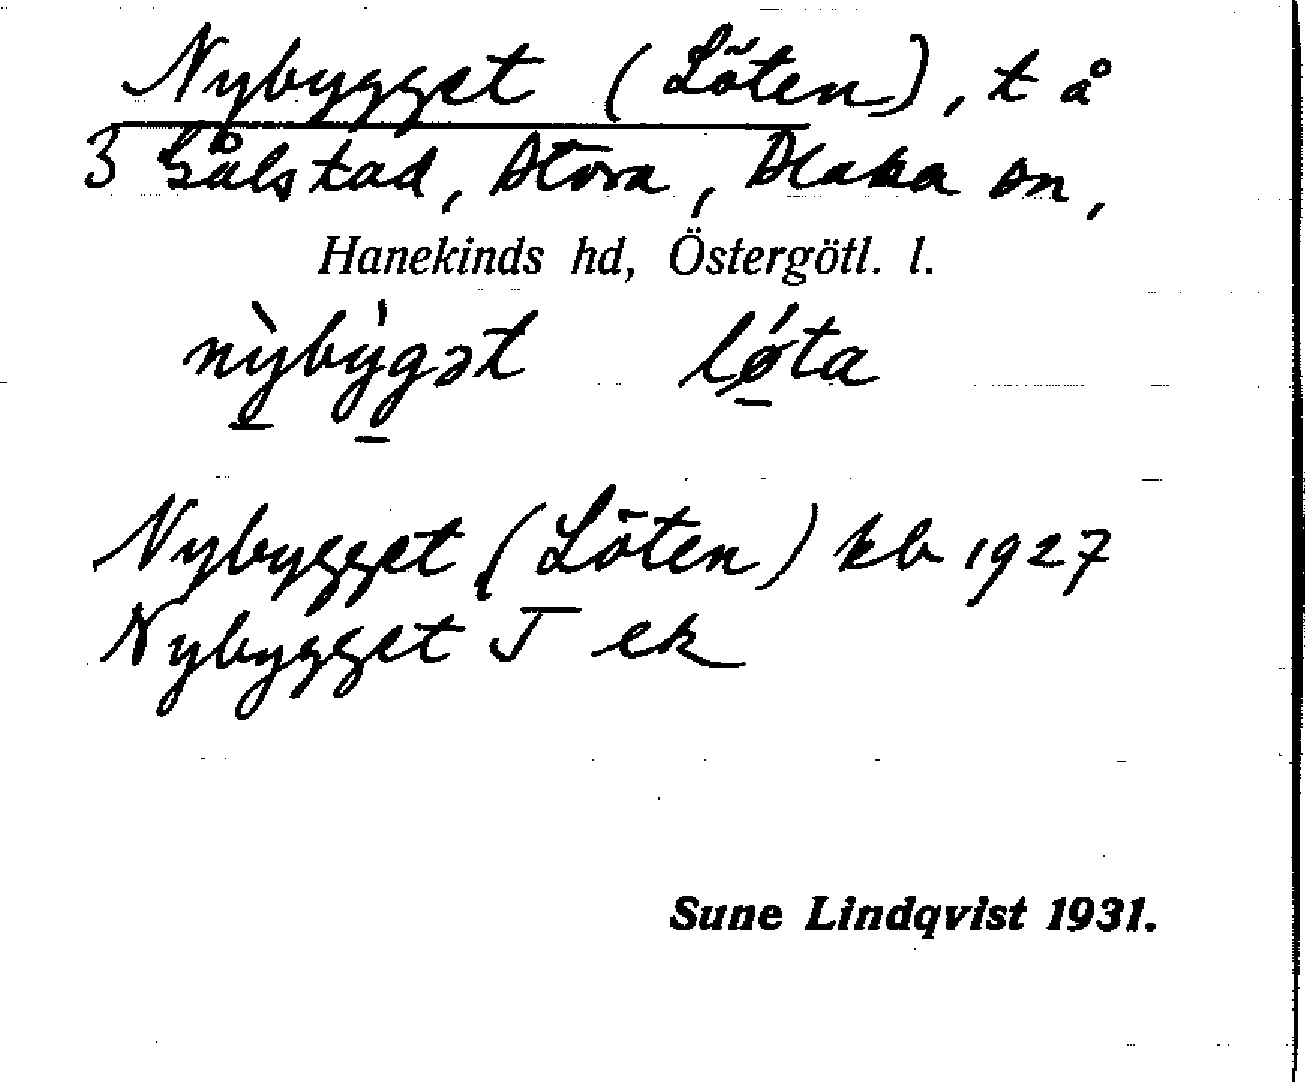 Nybygget (Löten), t å
3 Gålstad, Stora, Slaka sn,
Hanekinds hd, Östergötl. l.
nỳbỳgət lǿta
Nybygget (Löten) kb 1927
Nybygget T ek
Sune Lindqvist 1931.